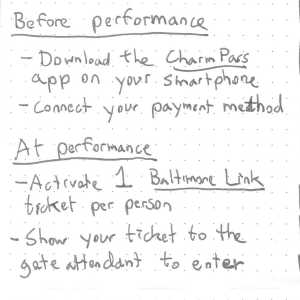 Before performance
- Download the CharmPass
app on your smartphone
- Connect your payment method
At performance
- Activate 1 Baltimore Link
ticket per person
- Show your ticket to the
gate attendant to enter